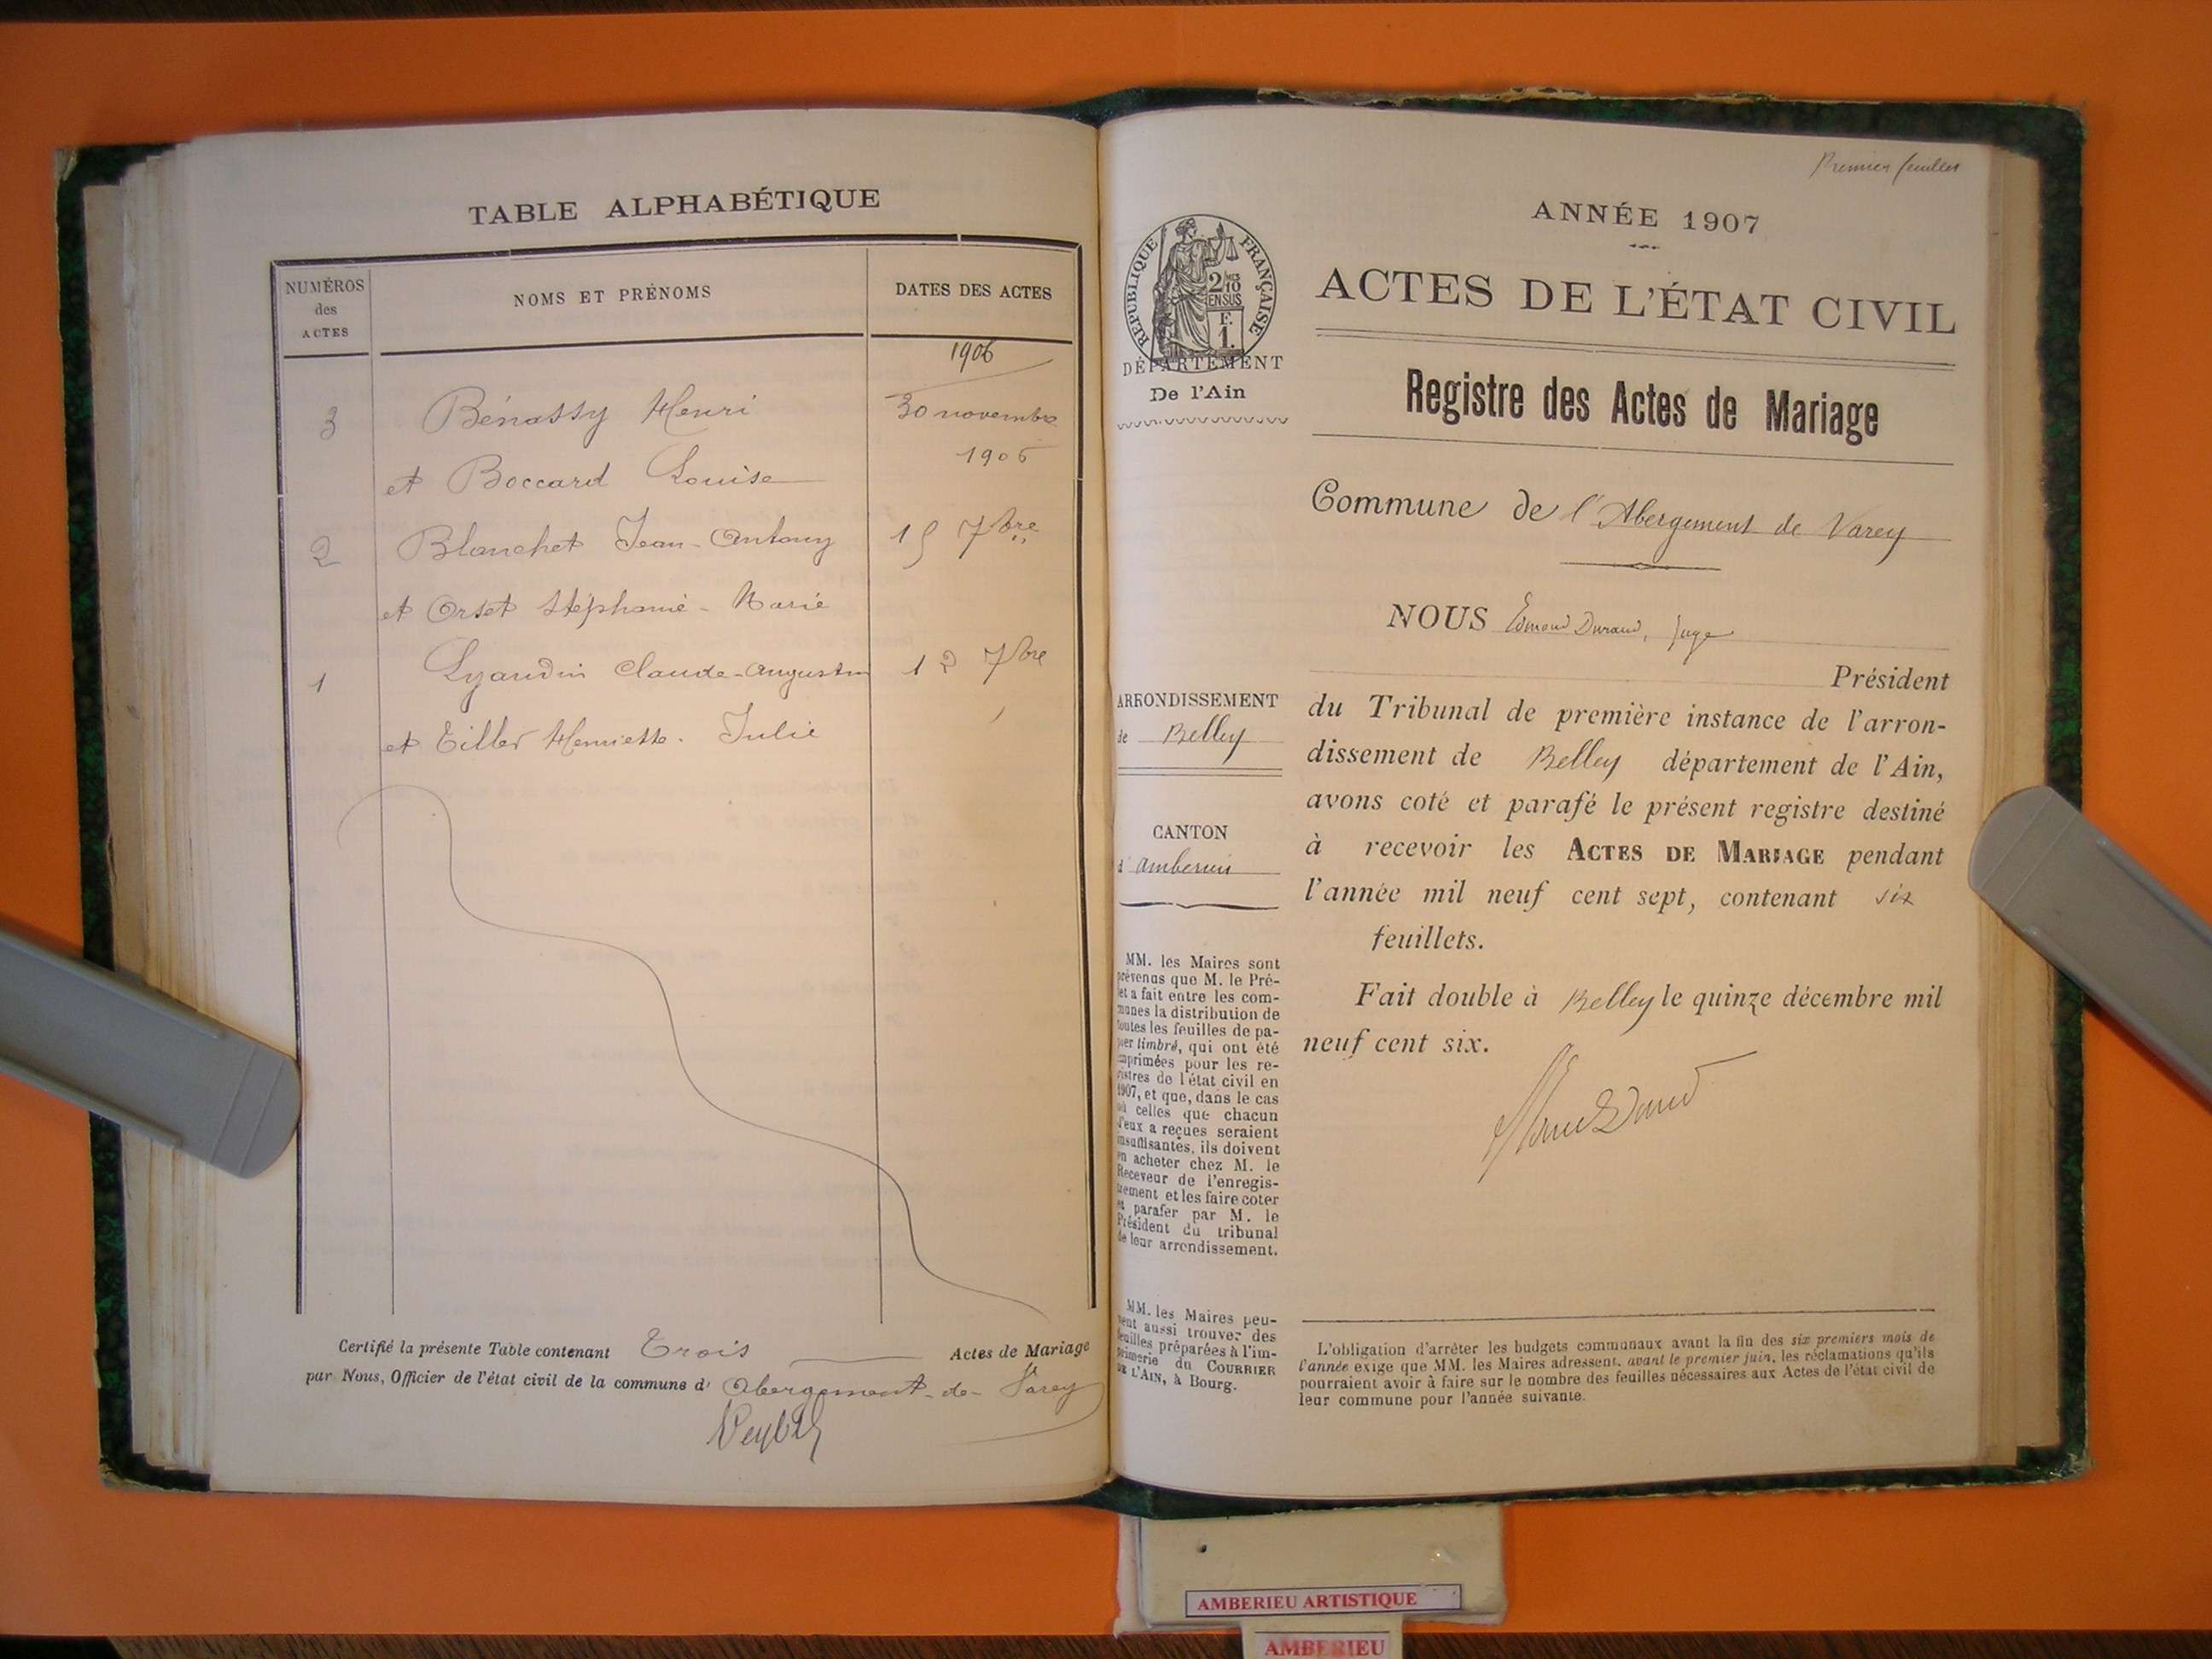 TABLE ALPHABÉTIQUE
NUMÉROS
des
ACTES
NOMS ET PRÉNOMS
DATES DES ACTES
1906
3 Bénassy Henri 30 novembre
1906
et Boccard Louise
2 Blanchet Jean-Antony 15 7bre
et Orset Stéphanie-Marie
1 Lyaudin Claude-Augustin 12 7bre
et Tiller Henriette-Julie
Certifié la présente Table contenant Trois Actes de Mariage
par Nous, Officier de l'état civil de la commune d' Abergement-de-Varey
Premier feuillet
ANNÉE 1907
RÉPUBLIQUE FRANÇAISE
2/10
EN SUS
F.
1.
DÉPARTEMENT
De l'Ain
ACTES DE L'ÉTAT CIVIL
Registre des Actes de Mariage
Commune de l'Abergement de Varey
NOUS Edmond Durand, Juge
Président
du Tribunal de première instance de l'arron-
dissement de Belley département de l'Ain,
avons coté et parafé le présent registre destiné
à recevoir les ACTES DE MARIAGE pendant
l'année mil neuf cent sept, contenant six
feuillets.
Fait double à Belley le quinze décembre mil
neuf cent six.
ARRONDISSEMENT
de Belley
CANTON
d'Amberieu
MM. les Maires sont
prévenus que M. le Pré-
fet a fait entre les com-
munes la distribution de
toutes les feuilles de pa-
pier timbré, qui ont été
imprimées pour les re-
gistres de l'état civil en
1907, et que, dans le cas
où celles que chacun
d'eux a reçues seraient
insuffisantes, ils doivent
en acheter chez M. le
Receveur de l'enregis-
trement et les faire coter
et parafer par M. le
Président du tribunal
de leur arrondissement.
MM. les Maires peu-
vent aussi trouver des
feuilles préparées à l'im-
primerie du COURRIER
DE L'AIN, à Bourg.
L'obligation d'arrêter les budgets communaux avant la fin des six premiers mois de
l'année exige que MM. les Maires adressent, avant le premier juin, les réclamations qu'ils
pourraient avoir à faire sur le nombre des feuilles nécessaires aux Actes de l'état civil de
leur commune pour l'année suivante.
AMBERIEU ARTISTIQUE
AMBERIEU